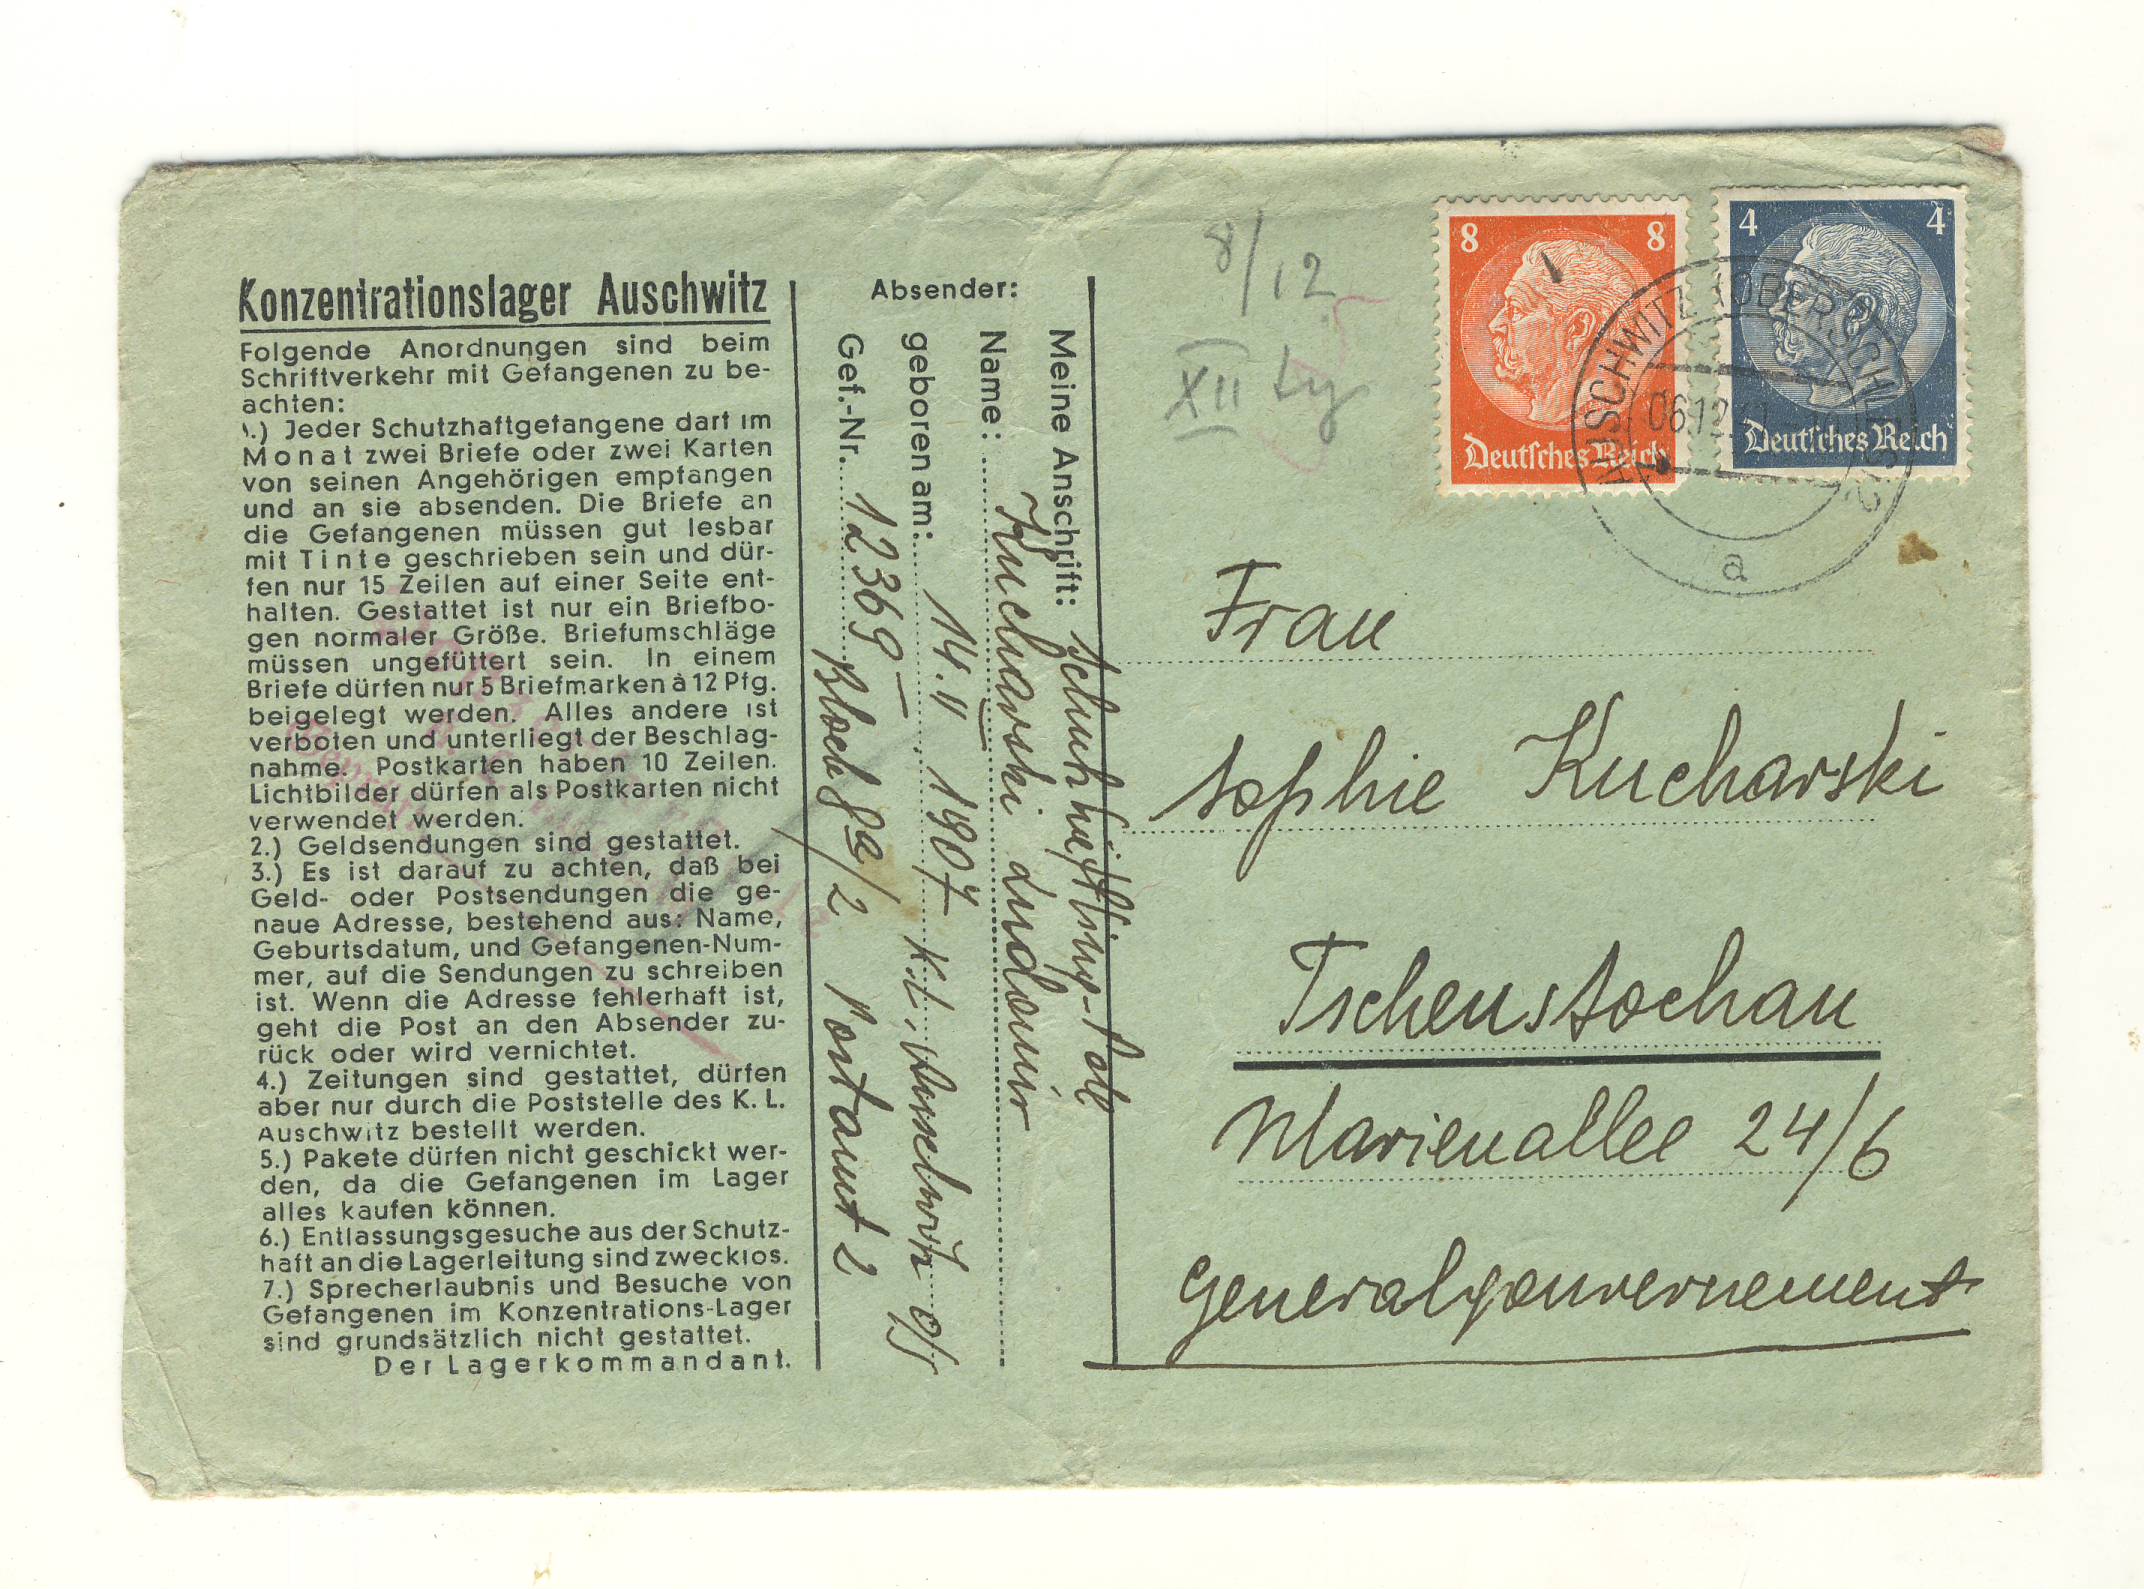 Konzentrationslager Auschwitz
Folgende Anordnungen sind beim
Schriftverkehr mit Gefangenen zu be-
achten:
1.) Jeder Schutzhaftgefangene darf im
Monat zwei Briefe oder zwei Karten
von seinen Angehörigen empfangen
und an sie absenden. Die Briefe an
die Gefangenen müssen gut lesbar
mit Tinte geschrieben sein und dür-
fen nur 15 Zeilen auf einer Seite ent-
halten. Gestattet ist nur ein Briefbo-
gen normaler Größe. Briefumschläge
müssen ungefüttert sein. In einem
Briefe dürfen nur 5 Briefmarken à 12 Pfg.
beigelegt werden. Alles andere ist
verboten und unterliegt der Beschlag-
nahme. Postkarten haben 10 Zeilen.
Lichtbilder dürfen als Postkarten nicht
verwendet werden.
2.) Geldsendungen sind gestattet.
3.) Es ist darauf zu achten, daß bei
Geld- oder Postsendungen die ge-
naue Adresse, bestehend aus: Name,
Geburtsdatum, und Gefangenen-Num-
mer, auf die Sendungen zu schreiben
ist. Wenn die Adresse fehlerhaft ist,
geht die Post an den Absender zu-
rück oder wird vernichtet.
4.) Zeitungen sind gestattet, dürfen
aber nur durch die Poststelle des K. L.
Auschwitz bestellt werden.
5.) Pakete dürfen nicht geschickt wer-
den, da die Gefangenen im Lager
alles kaufen können.
6.) Entlassungsgesuche aus der Schutz-
haft an die Lagerleitung sind zwecklos.
7.) Sprecherlaubnis und Besuche von
Gefangenen im Konzentrations-Lager
sind grundsätzlich nicht gestattet.
Der Lagerkommandant.
Absender:
Meine Anschrift: Schutzhäftling-Pole
Name: Kucharski Ludomir
geboren am: 14.II 1907 K.L. Auschwitz O/S
Gef.-Nr. 12369 Block 8a/2 Postamt 2
8/12
XII
8 8
Deutsches Reich
4 4
Deutsches Reich
AUSCHWITZ (OBERSCHLES) 2
06.12.
a
Frau
Sophie Kucharski
Tschenstochau
Marienallee 24/6
Generalgouvernement